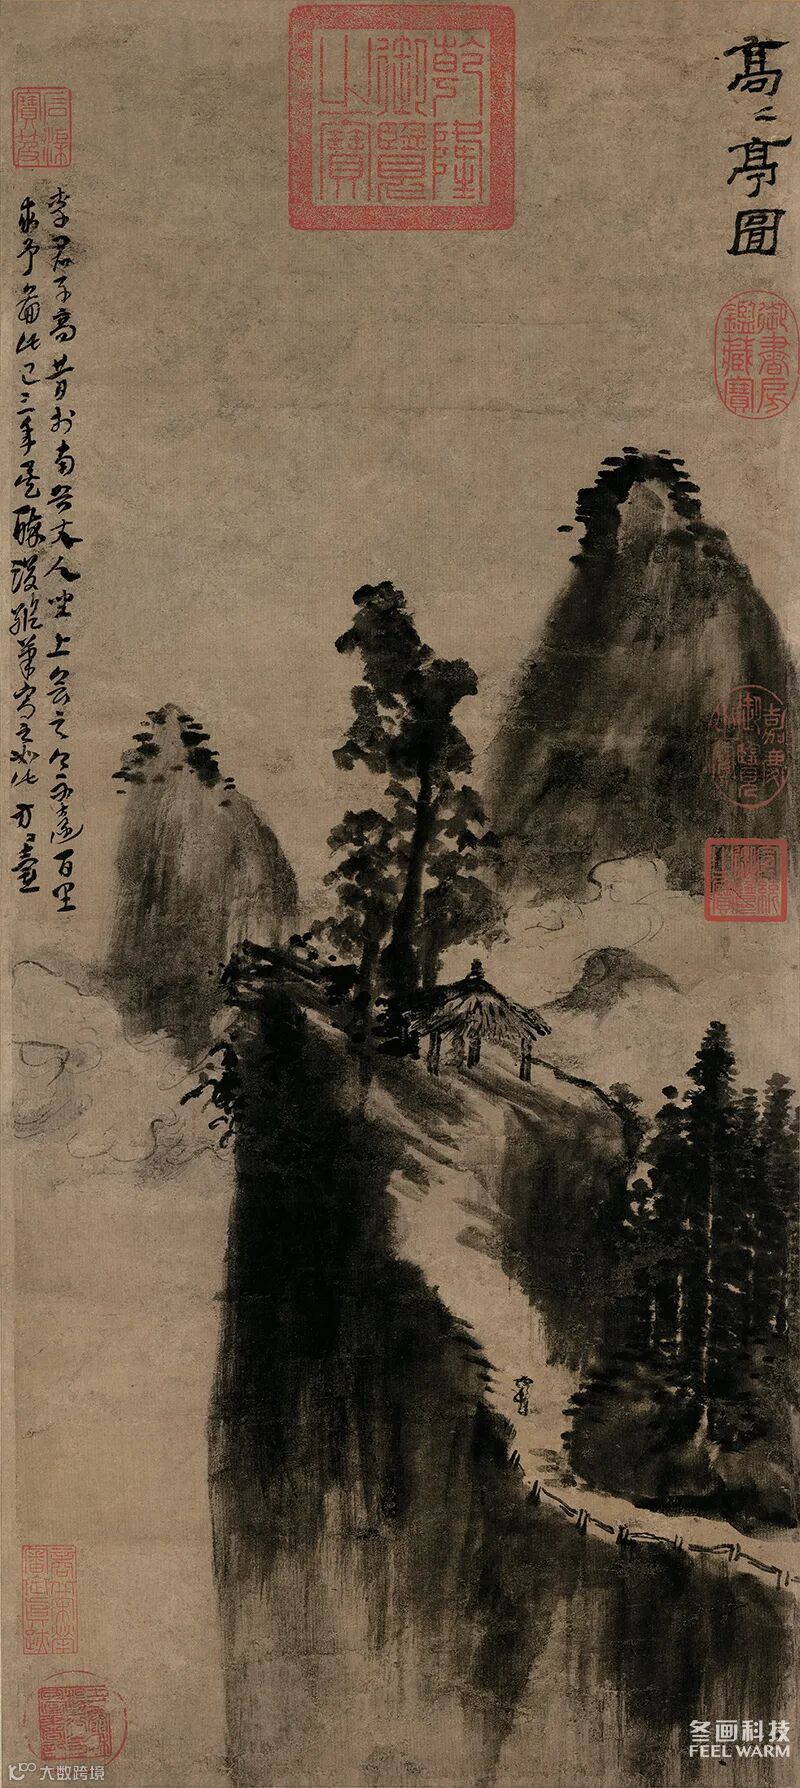 高〻亭圖
乾隆御覽之寶
石渠寶笈
御書房鑑藏寶
李君子高昔於南谷丈人坐上會之今不遠百里
求予畫此已三年是醉後縱筆寫之如此方壺
嘉慶御覽之寶
宣統御覽之寶
冬画科技
FEEL WARM
大数跨境